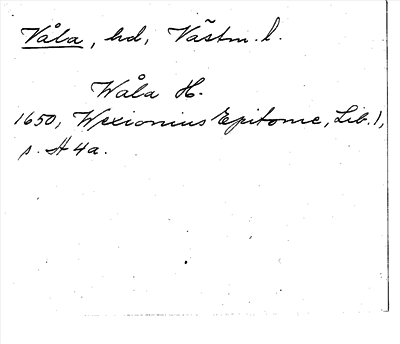 Våla, hd, Västm. l.
Wåla H.
1650, Wexionius Epitome, Lib. 1,
s. H 4a.